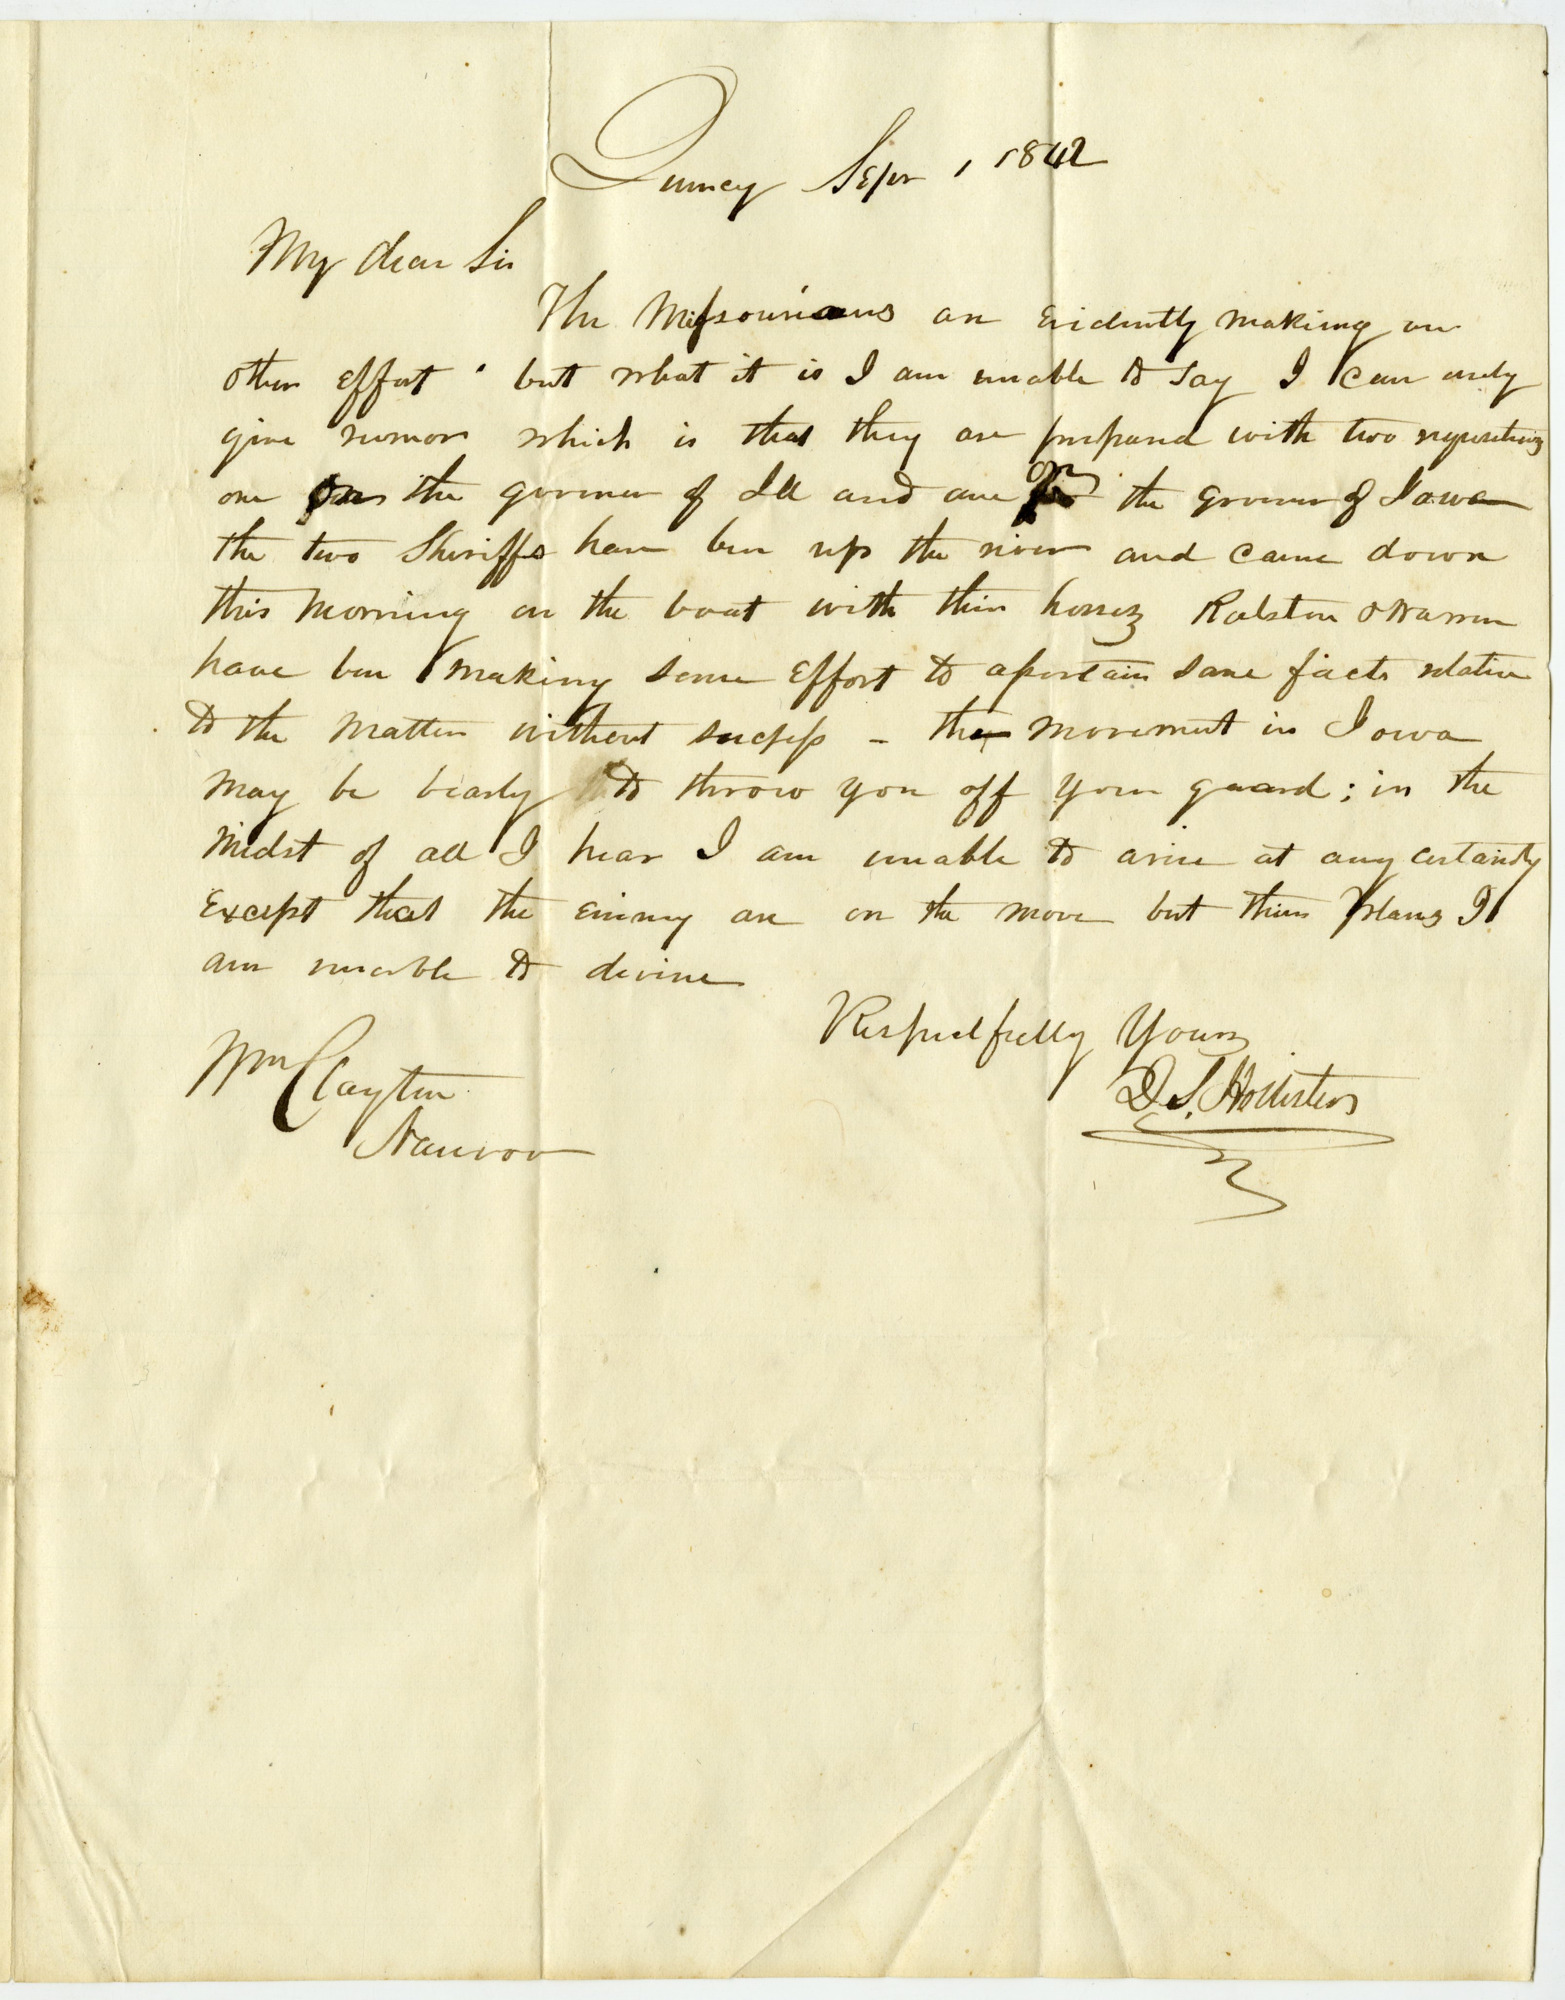 Quincy Sepr 1 1842
My dear Sir
The Missourians are Evidently making an
other effort but what it is I am unable to say I can only
give rumor which is that they are prepared with two requsitions
one on the governer of Ill and one on the Governer of Iowa
the two Sheriffs have ben up the river and came down
this morning on the boat with their horses Ralston & Warren
have ben making some effort to assertain some facts relative
to the matter without success – the movement in Iowa
may be bearly to throw you off your guard; in the
midst of all I hear I am unable to arive at any certainty
Except that the enimy are on the move but their plans I
am unable to devine
Respectfully Yours
D. S. Hollister
Wm Clayton
Nauvoo